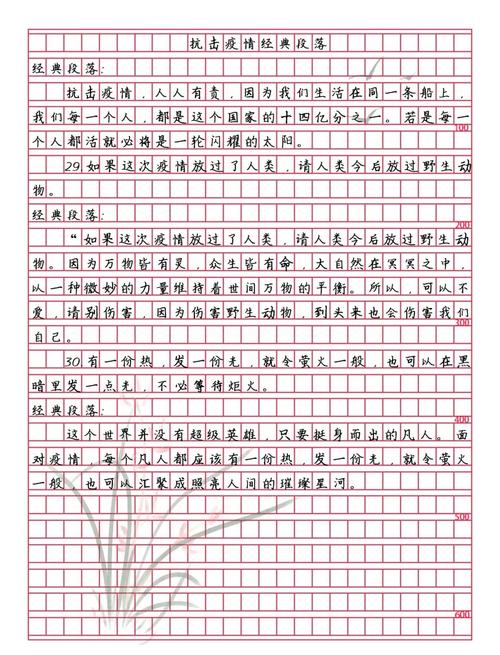 抗击疫情经典段落
经典段落:
抗击疫情,人人有责,因为我们生活在同一条船上,
我们每一个人,都是这个国家的十四亿分之一。若是每一
100
个人都活就必将是一轮闪耀的太阳。
29如果这次疫情放过了人类,请人类今后放过野生动
物。
经典段落:
200
“如果这次疫情放过了人类,请人类今后放过野生动
物。因为万物皆有灵,众生皆有命,大自然在冥冥之中,
以一种微妙的力量维持着世间万物的平衡。所以,可以不
爱,请别伤害,因为伤害野生动物,到头来也会伤害我们
300
自己。
30有一份热,发一份光,就令萤火一般,也可以在黑
暗里发一点光,不必等待炬火。
经典段落:
400
这个世界并没有超级英雄,只要挺身而出的凡人。面
对疫情,每个凡人都应该有一份热,发一份光,就令萤火
一般,也可以汇聚成照亮人间的璀璨星河。
500
600